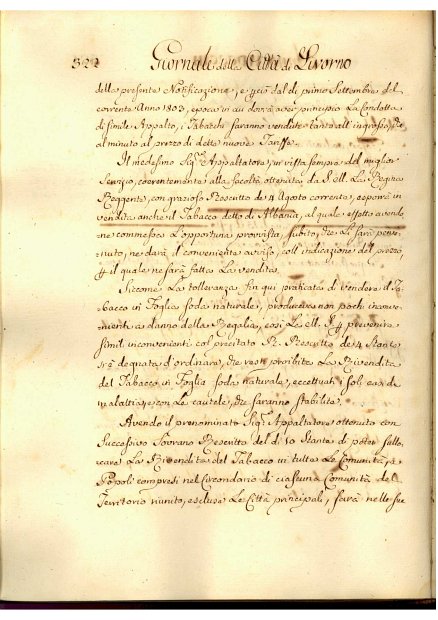 322 Giornale della Città di Livorno
della presente Notificazione, e però dal dì primo Settembre del
corrente Anno 1803, epoca in cui dovrà aver principio La Condotta
di simile Appalto, i Tabacchi saranno venduti tanto all'ingrosso, che
al minuto al prezzo di dette nuove Tariffe.
Il medesimo Sig.r Appaltatore, in vista sempre del miglior
Servizio, coerentemente alla facoltà ottenuta da S. M. La Regina
Reggente, con grazioso Rescritto de' 4 Agosto corrente, esporrà in
vendita anche il Tabacco detto di Albania, al quale effetto avendo-
ne commessa L'opportuna provvista, subito, che Le sarà perve-
nuto, ne darà il conveniente avviso, coll'indicazione del prezzo,
p il quale ne sarà fatta La vendita.
Siccome La tolleranza fin qui praticata di vendere il Ta-
bacco in Foglia soda naturale, produceva non pochi inconve-
nienti a danno della Regalia, così La M. S. p prevenire
simili inconvenienti col precitato R. Rescritto de' 4 Stante
si è degnata d'ordinare, che resti proibita La Rivendita
del Tabacco in Foglia soda naturale, eccettuati i soli casi di
malattia, e con Le cautele, che saranno stabilite.
Avendo il prenominato Sig.r Appaltatore ottenuto con
Successivo Sovrano Rescritto del dì 10 Stante di poter subb-
licare La Rivendita del Tabacco in tutte Le Comunità, e
Popoli compresi nel Circondario di ciascuna Comunità del
Territorio riunito, escluse Le Città principali, sarà nelle sue